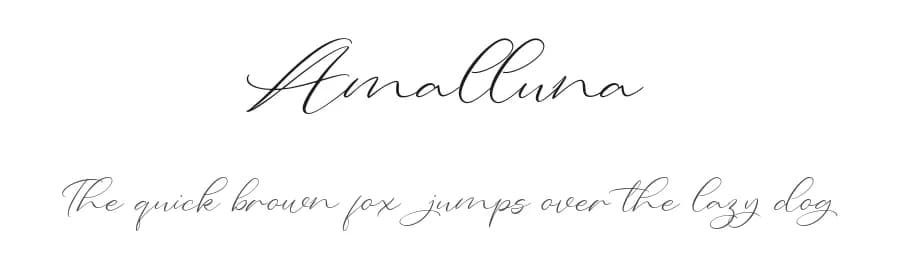 Amalluna
The quick brown fox jumps over the lazy dog